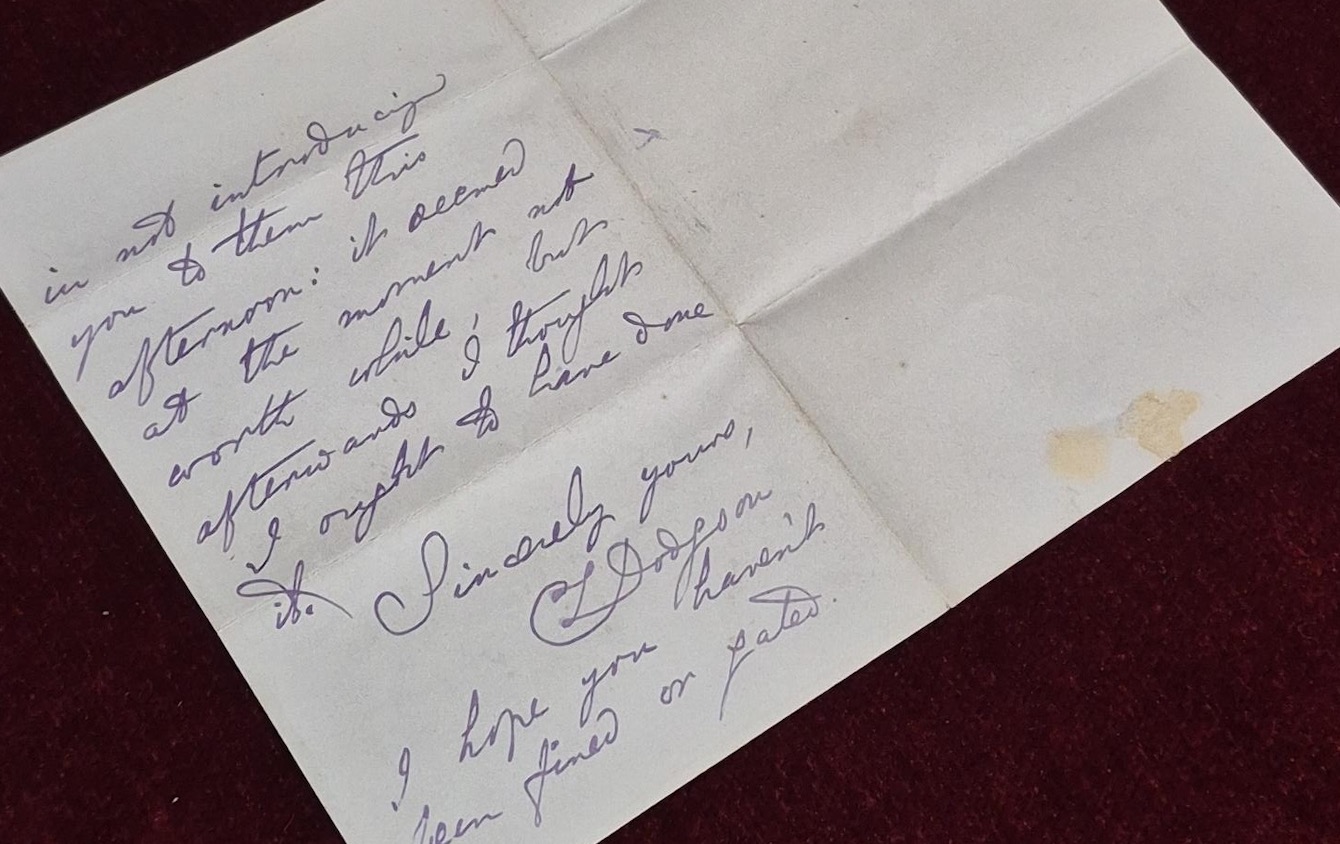 in not introducing
you to them this
afternoon: it seemed
at the moment not
worth while, but
afterwards I thought
I ought to have done
it.
Sincerely yours,
CLDodgson
I hope you haven't
been fined or gated.